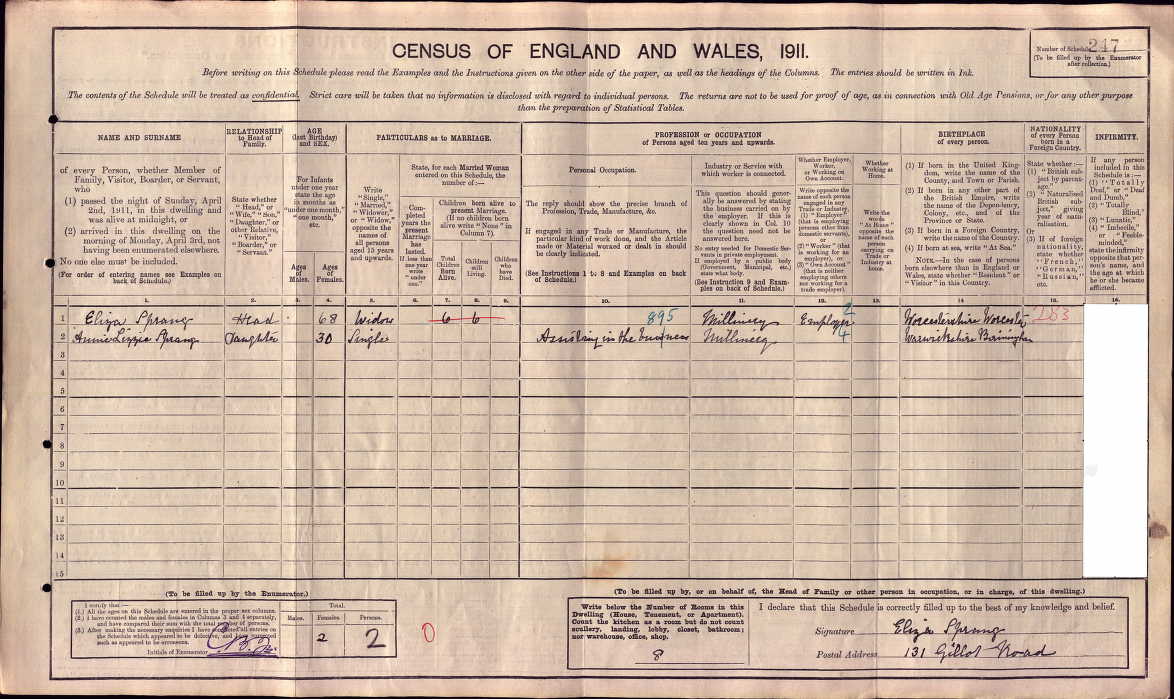 CENSUS OF ENGLAND AND WALES, 1911.
Number of Schedule 247
(To be filled up by the Enumerator
after collection.)
Before writing on this Schedule please read the Examples and the Instructions given on the other side of the paper, as well as the headings of the Columns. The entries should be written in Ink.
The contents of the Schedule will be treated as confidential. Strict care will be taken that no information is disclosed with regard to individual persons. The returns are not to be used for proof of age, as in connection with Old Age Pensions, or for any other purpose
than the preparation of Statistical Tables.
NAME AND SURNAME
of every Person, whether Member of
Family, Visitor, Boarder, or Servant,
who
(1) passed the night of Sunday, April
2nd, 1911, in this dwelling and
was alive at midnight, or
(2) arrived in this dwelling on the
morning of Monday, April 3rd, not
having been enumerated elsewhere.
No one else must be included.
(For order of entering names see Examples on
back of Schedule.)
RELATIONSHIP
to Head of
Family.
State whether
"Head," or
"Wife," "Son,"
"Daughter," or
other Relative,
"Visitor,"
"Boarder," or
"Servant."
AGE
(last Birthday)
and SEX.
For Infants
under one year
state the age
in months as
"under one month,"
"one month,"
etc.
Ages
of
Males.
Ages
of
Females.
PARTICULARS as to MARRIAGE.
Write
"Single,"
"Married,"
"Widower,"
or "Widow,"
opposite the
names of
all persons
aged 15 years
and upwards.
State, for each Married Woman
entered on this Schedule, the
number of:—
Completed
years the
present
Marriage
has
lasted.
If less than
one year
write
"under
one."
Children born alive to
present Marriage.
(If no children born
alive write "None" in
Column 7).
Total
Children
Born
Alive.
Children
still
Living.
Children
who
have
Died.
PROFESSION or OCCUPATION
of Persons aged ten years and upwards.
Personal Occupation.
The reply should show the precise branch of
Profession, Trade, Manufacture, &c.
If engaged in any Trade or Manufacture, the
particular kind of work done, and the Article
made or Material worked or dealt in should
be clearly indicated.
(See Instructions 1 to 8 and Examples on back
of Schedule.)
Industry or Service with
which worker is connected.
This question should generally
be answered by stating
the business carried on by
the employer. If this is
clearly shown in Col. 10
the question need not be
answered here.
No entry needed for Domestic Servants
in private employment.
If employed by a public body
(Government, Municipal, etc.)
state what body.
(See Instruction 9 and Examples
on back of Schedule.)
Whether Employer,
Worker,
or Working on
Own Account.
Write opposite the
name of each person
engaged in any
Trade or Industry,
(1) "Employer"
(that is employing
persons other than
domestic servants),
or
(2) "Worker" (that
is working for an
employer), or
(3) "Own Account"
(that is neither
employing others
nor working for a
trade employer).
Whether
Working at
Home.
Write the
words
"At Home"
opposite the
name of each
person
carrying on
Trade or
Industry at
home.
BIRTHPLACE
of every person.
(1) If born in the United Kingdom,
write the name of the
County, and Town or Parish.
(2) If born in any other part of
the British Empire, write
the name of the Dependency,
Colony, etc., and of the
Province or State.
(3) If born in a Foreign Country,
write the name of the Country.
(4) If born at sea, write "At Sea."
NOTE.—In the case of persons
born elsewhere than in England or
Wales, state whether "Resident" or
"Visitor" in this Country.
NATIONALITY
of every Person
born in a
Foreign Country.
State whether:—
(1) "British subject
by parentage,"
(2) "Naturalised
British
subject,"
giving
year of naturalisation.
Or
(3) If of foreign
nationality,
state whether
"French,"
"German,"
"Russian,"
etc.
INFIRMITY.
If any person
included in this
Schedule is:—
(1) "Totally
Deaf," or "Deaf
and Dumb,"
(2) "Totally
Blind,"
(3) "Lunatic,"
(4) "Imbecile,"
or "Feeble-
minded,"
state the infirmity
opposite that person's
name, and
the age at which
he or she became
afflicted.
1. 2. 3. 4. 5. 6. 7. 8. 9. 10. 11. 12. 13. 14 15. 16.
1 Eliza Sprang Head - 68 Widow 6 6 895 Millinery Employer 2 Worcestershire Worcester 183
2 Annie Lizzie Sprang Daughter 30 Single Assisting in the business Millinery 4 Warwickshire Birmingham
3
4
5
6
7
8
9
10
11
12
13
14
15
(To be filled up by the Enumerator.)
I certify that:—
(1.) All the ages on this Schedule are entered in the proper sex columns.
(2.) I have counted the males and females in Columns 3 and 4 separately,
and have compared their sum with the total number of persons.
(3.) After making the necessary enquiries I have completed all entries on
the Schedule which appeared to be defective, and have corrected
such as appeared to be erroneous.
Initials of Enumerator
Total.
Males. Females. Persons.
2 2
0
(To be filled up by, or on behalf of, the Head of Family or other person in occupation, or in charge, of this dwelling.)
Write below the Number of Rooms in this
Dwelling (House, Tenement, or Apartment).
Count the kitchen as a room but do not count
scullery, landing, lobby, closet, bathroom;
nor warehouse, office, shop.
8
I declare that this Schedule is correctly filled up to the best of my knowledge and belief.
Signature Eliza Sprang
Postal Address 131 Gillot Road